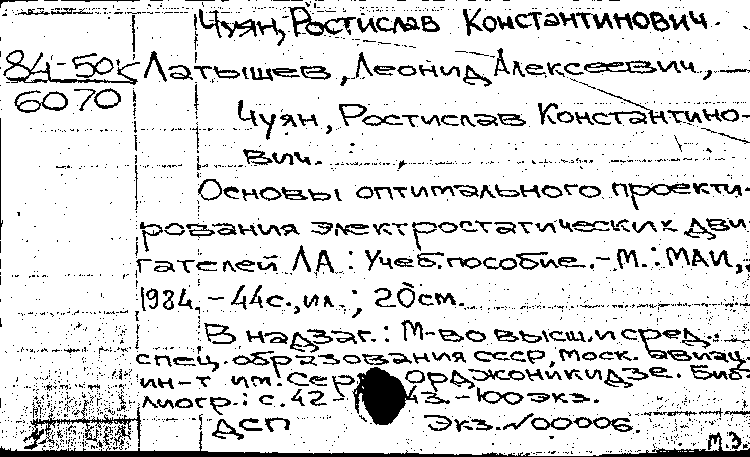 Чуян, Ростислав Константинович.
84-50к Латышев, Леонид Алексеевич,
6070
Чуян, Ростислав Константино-
вич.
Основы оптимального проекти-
рования электростатических дви
гателей ЛА: Учеб. пособие. - М.: МАИ,
1984. - 44с., ил.; 20см.
В надзаг.: М-во высш. и сред.
спец. образования СССР, Моск. авиац.
ин-т им. Серго Орджоникидзе. Биб-
лиогр.: с. 42- 43. - 100 экз.
ДСП Экз. N00006.
М.З.